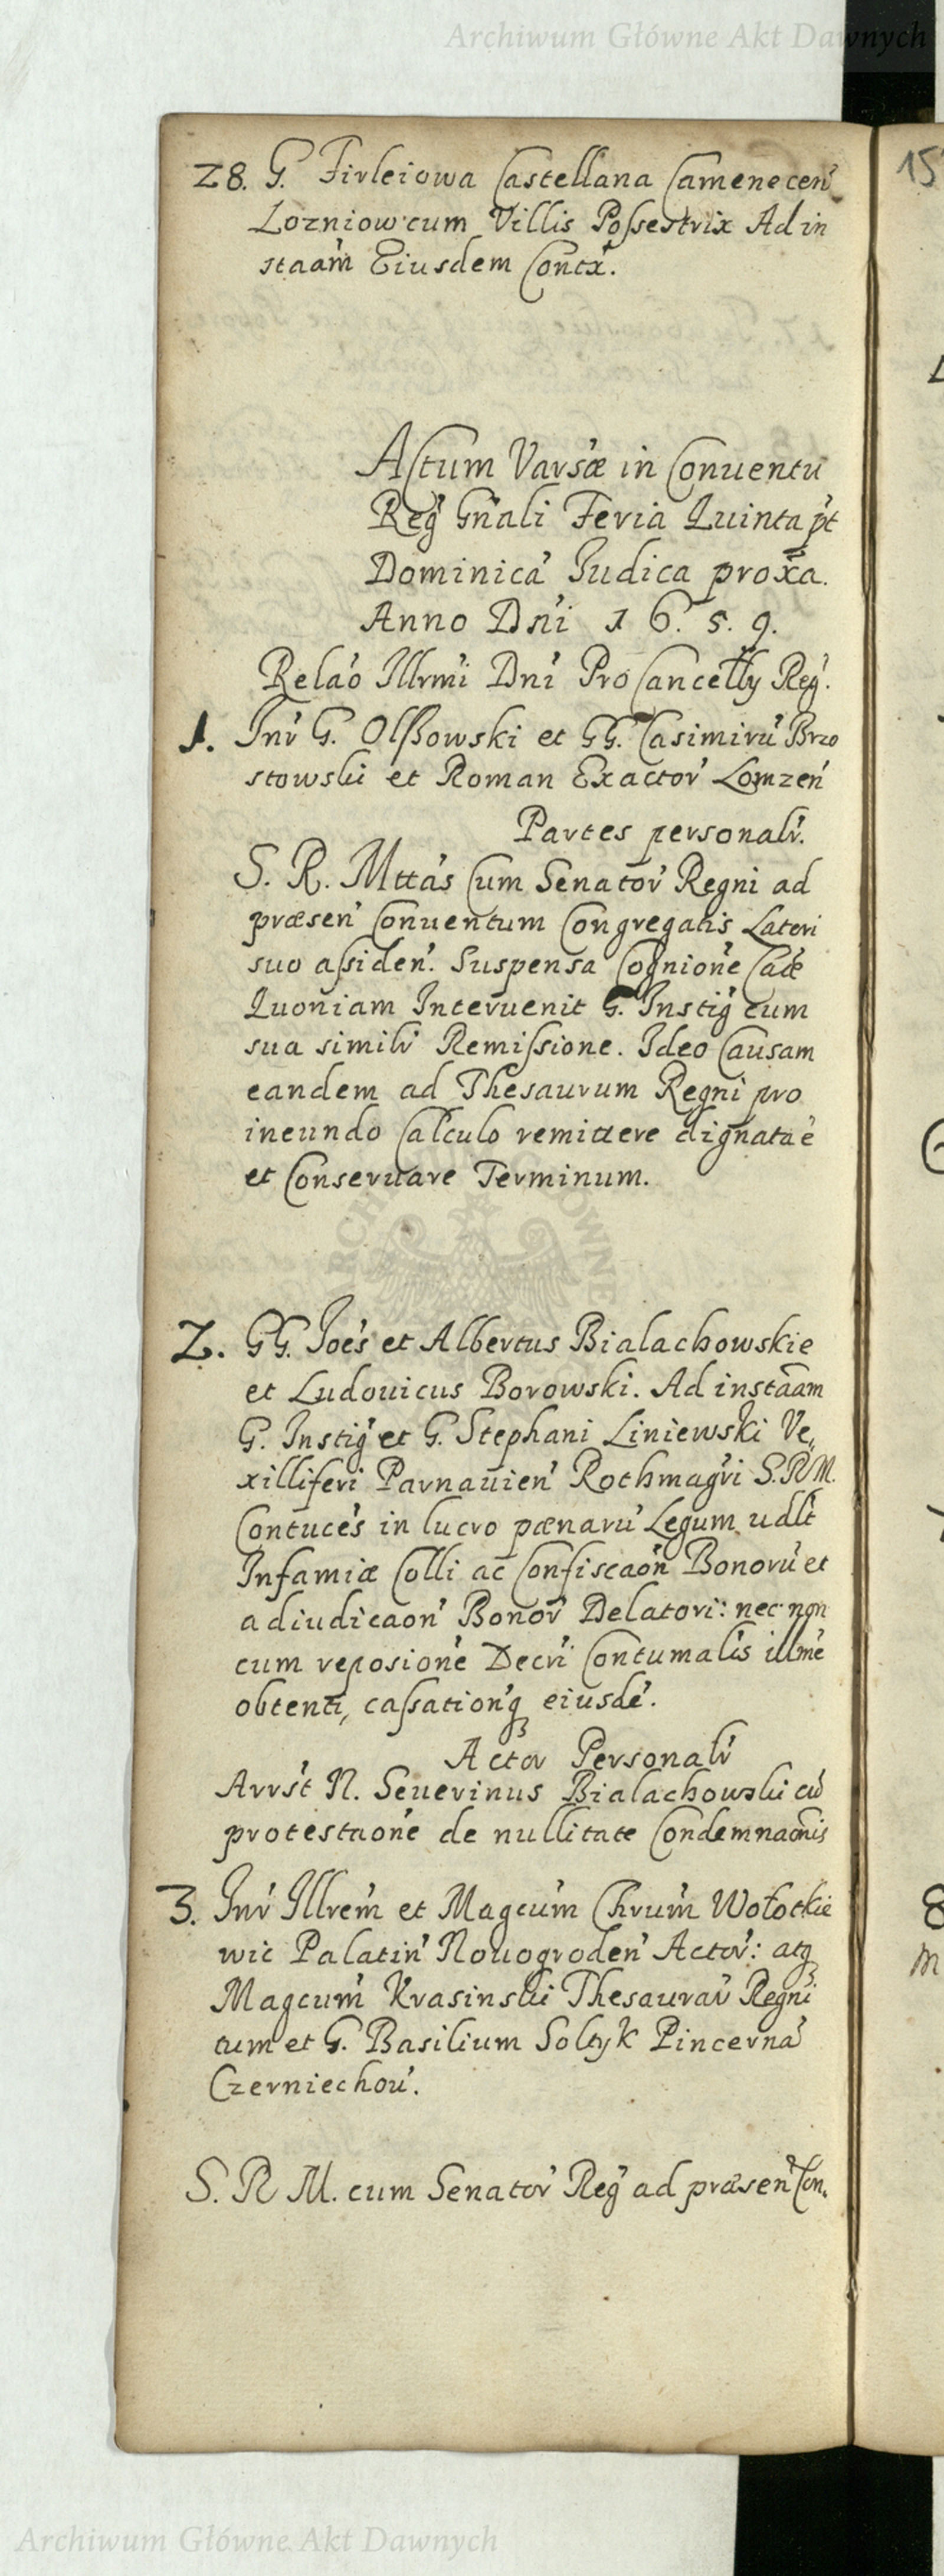 Archiwum Główne Akt Dawnych
15
28. G. Firleiowa Castellana Camenecen̄
Lozniow cum Villis Possestrix Ad in
staam̄ Eiusdem Contx̄.
Actum Varsæ in Conuentu
Reg Gnāli Feria Quinta pt
Dominicā Iudica prox̄a.
Anno Dn̄i 1 6. 5. 9.
Relāo Illrmi Dn̄i Pro Cancelly Reg.
1. Inr̄ G. Olszowski et GG. Casimirū Brzo
stowski et Roman Exactor̄ Lomzen̄
Partes personalr̄.
S. R. Mttās Cum Senator̄ Regni ad
præsen̄ Conuentum Congregatis Lateri
suo assiden̄. Suspensa Cognione Cāæ
Quoniam Interuenit G. Instig cum
sua similr̄ Remissione. Ideo Causam
eandem ad Thesaurum Regni pro
ineundo Calculo remittere dignatæ
et Conseruare Terminum.
2. GG. Joēs et Albertus Bialachowskie
et Ludouicus Borowski. Ad instāam
G. Instig et G. Stephani Liniewski Ve,,
xilliferi Parnauien̄ Rothmagr̄i S.R M.
Contucēs in lucro pænarū Legum udlt
Infamiæ Colli ac Confiscaōn Bonorū et
adiudicaōn Bonor̄ Delatori: nec non
cum reposionē Decr̄i Contumalis illmē
obtenti, cassationq eiusdē.
Actor Personalr̄
Arrst N. Seuerinus Bialachowski cū
protestaonē de nullitate Condemnaōnis
3. Inr̄ Illrem̄ et Magcum̄ Chrum̄ Wołotkie
wic Palatin̄ Nouogroden̄ Actor̄: atq
Magcum̄ Krasinski Thesaurar̄ Regni
tum et G. Basilium Soltyk Pincernā
Czerniechou̅.
S. R M. cum Senator̄ Reg ad præsen̄ Con,
8
m
Archiwum Główne Akt Dawnych